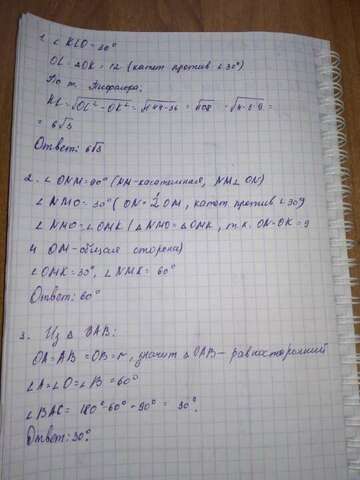 1. ∠KLO = 30°
OL = 2OK = 12 (катет против ∠30°)
По т. Пифагора:
KL = √OL² - OK² = √144-36 = √108 = √4·3·9 =
= 6√3
Ответ: 6√3
2. ∠ONM = 90° (NM - касательная, NM ⊥ ON)
∠NMO = 30° (ON = ½ OM, катет против ∠30°)
∠NMO = ∠OMK (△NMO = △OMK, т.к. ON=OK=9
и OM - общая сторона)
∠OMK = 30°, ∠NMK = 60°
Ответ: 60°
3. Из △OAB:
OA = AB = OB = r, значит △OAB - равносторонний
∠A = ∠O = ∠B = 60°
∠BAC = 180° - 60° - 90° = 30°.
Ответ: 30°.